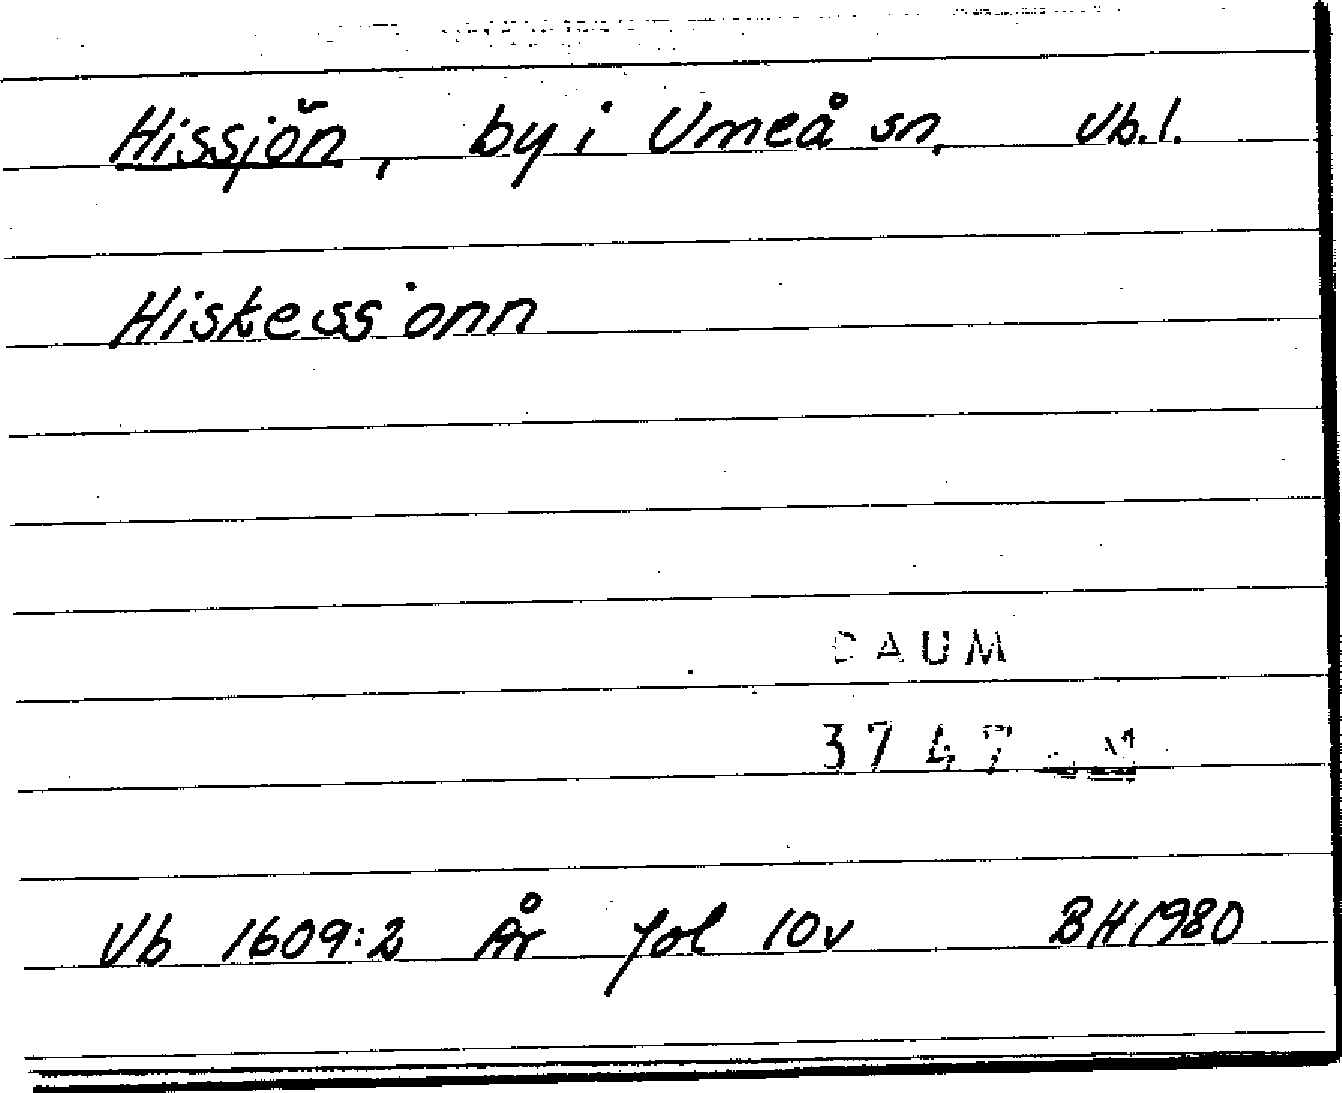 Hissjön, by i Umeå sn, Vb.l.
Hiskessionn
DAUM
3747
Vb 1609:2 År fol 10v BH 1980